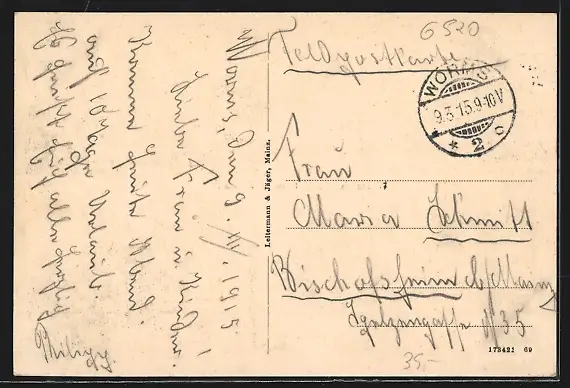 6520
Feldpostkarte
WORMS
9.3.15.9-10V
* 2 c
Frau
Maria Schmitt
Bischofsheim b/Mainz
Spelzengasse N/35
35,-
173421 69
Leitermann & Jäger, Mainz.
Worms, den 9. III. 1915
Liebe Frau u. Kinder!
Komme heute Abend
auf 10 Tage Urlaub.
Es grüßt Euch alle herzlich
Philipp.